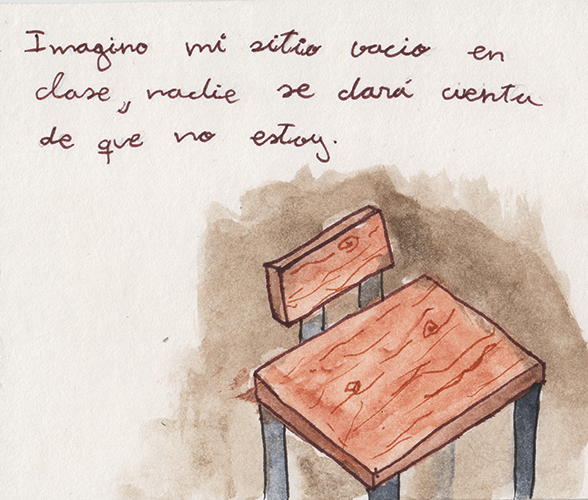 Imagino mi sitio vacio en
clase, nadie se dará cuenta
de que no estoy.